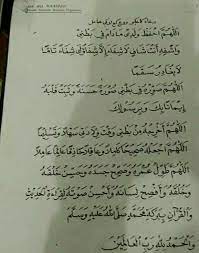 اَللّٰهُمَّ احْفَظْ وَلَدِيْ مَا دَامَ فِيْ بَطْنِيْ
وَاشْفِهِ أَنْتَ شَافٍ لَا شِفَاءَ إِلَّا شِفَاؤُكَ شِفَاءً
لَا يُغَادِرُ سَقَمًا
اَللّٰهُمَّ صَوِّرْهُ فِيْ بَطْنِيْ صُوْرَةً حَسَنَةً وَثَبِّتْ قَلْبَهُ
إِيْمَانًا بِكَ وَبِرَسُوْلِكَ
اَللّٰهُمَّ أَخْرِجْهُ مِنْ بَطْنِيْ وَقْتَ وِلَادَتِيْ سَهْلًا وَتَسْلِيْمًا
اَللّٰهُمَّ اجْعَلْهُ صَحِيْحًا كَامِلًا وَعَاقِلًا حَاذِقًا عَالِمًا عَامِلًا
اَللّٰهُمَّ طَوِّلْ عُمُرَهُ وَصَحِّحْ جَسَدَهُ وَحَسِّنْ خَلْقَهُ
وَخُلُقَهُ وَأَفْصِحْ لِسَانَهُ وَأَحْسِنْ صَوْتَهُ لِقِرَاءَةِ الْحَدِيْثِ
وَالْقُرْآنِ بِبَرَكَةِ مُحَمَّدٍ صَلَّى اللّٰهُ عَلَيْهِ وَسَلَّمَ
وَالْحَمْدُ لِلّٰهِ رَبِّ الْعَالَمِيْنَ